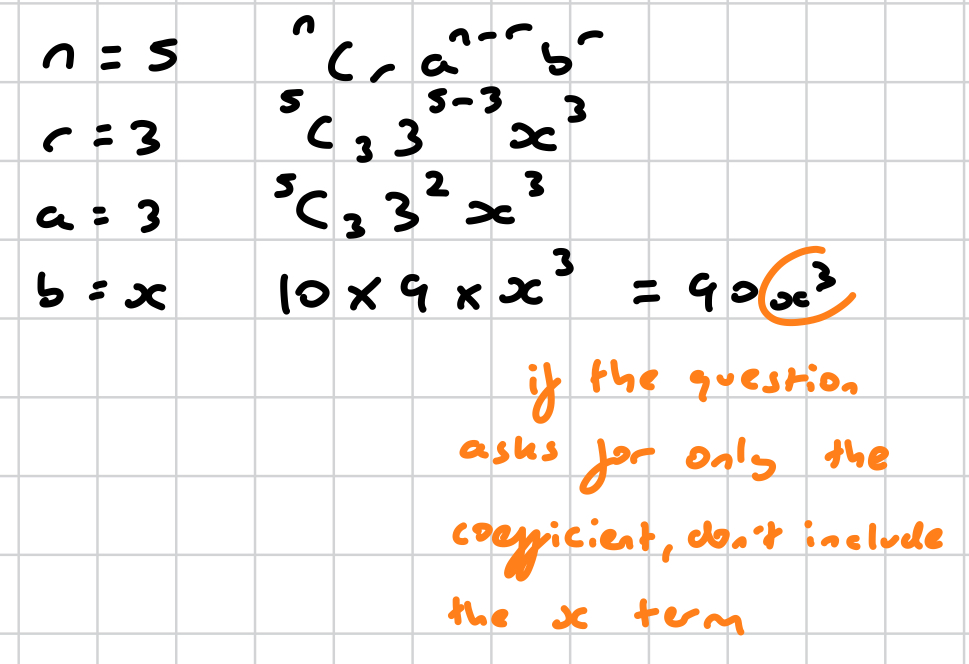 n = 5 ⁿCᵣ aⁿ⁻ʳ bʳ
r = 3 ⁵C₃ 3⁵⁻³ x³
a = 3 ⁵C₃ 3² x³
b = x 10 × 9 × x³ = 90x³
if the question
asks for only the
coefficient, don't include
the x term